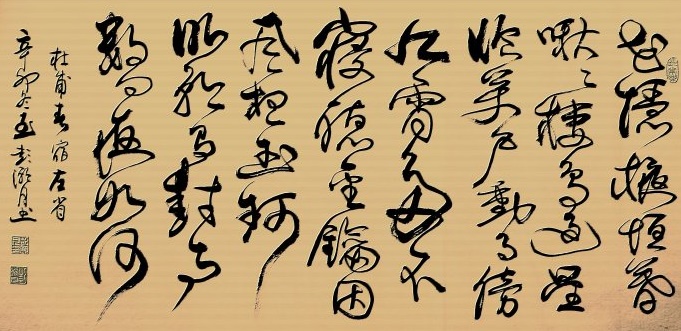 花隱掖垣暮
啾々棲鳥過星
臨萬戶動月傍
九霄多不
寢聽金鑰因
風想玉珂
明朝有封事
數問夜如何
杜甫春宿左省
辛卯冬至彭月書